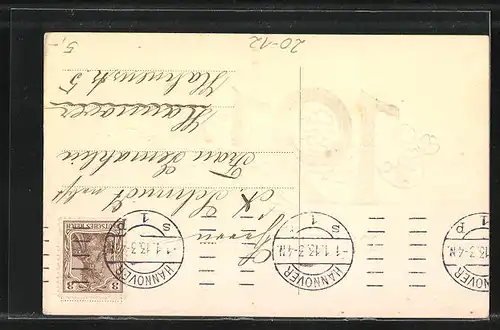 Herrn
A. Schmidt nebst
Frau Gemahlin
Hannover
Hahnenstr. 5
DEUTSCHES REICH
3 3
HANNOVER
-1.1.13.3-4N.
S 1 P
HANNOVER
-1.1.13.3-4N.
S 1 P
HANNOVER
1.13.3-4N.
1 P
20-12
5,-